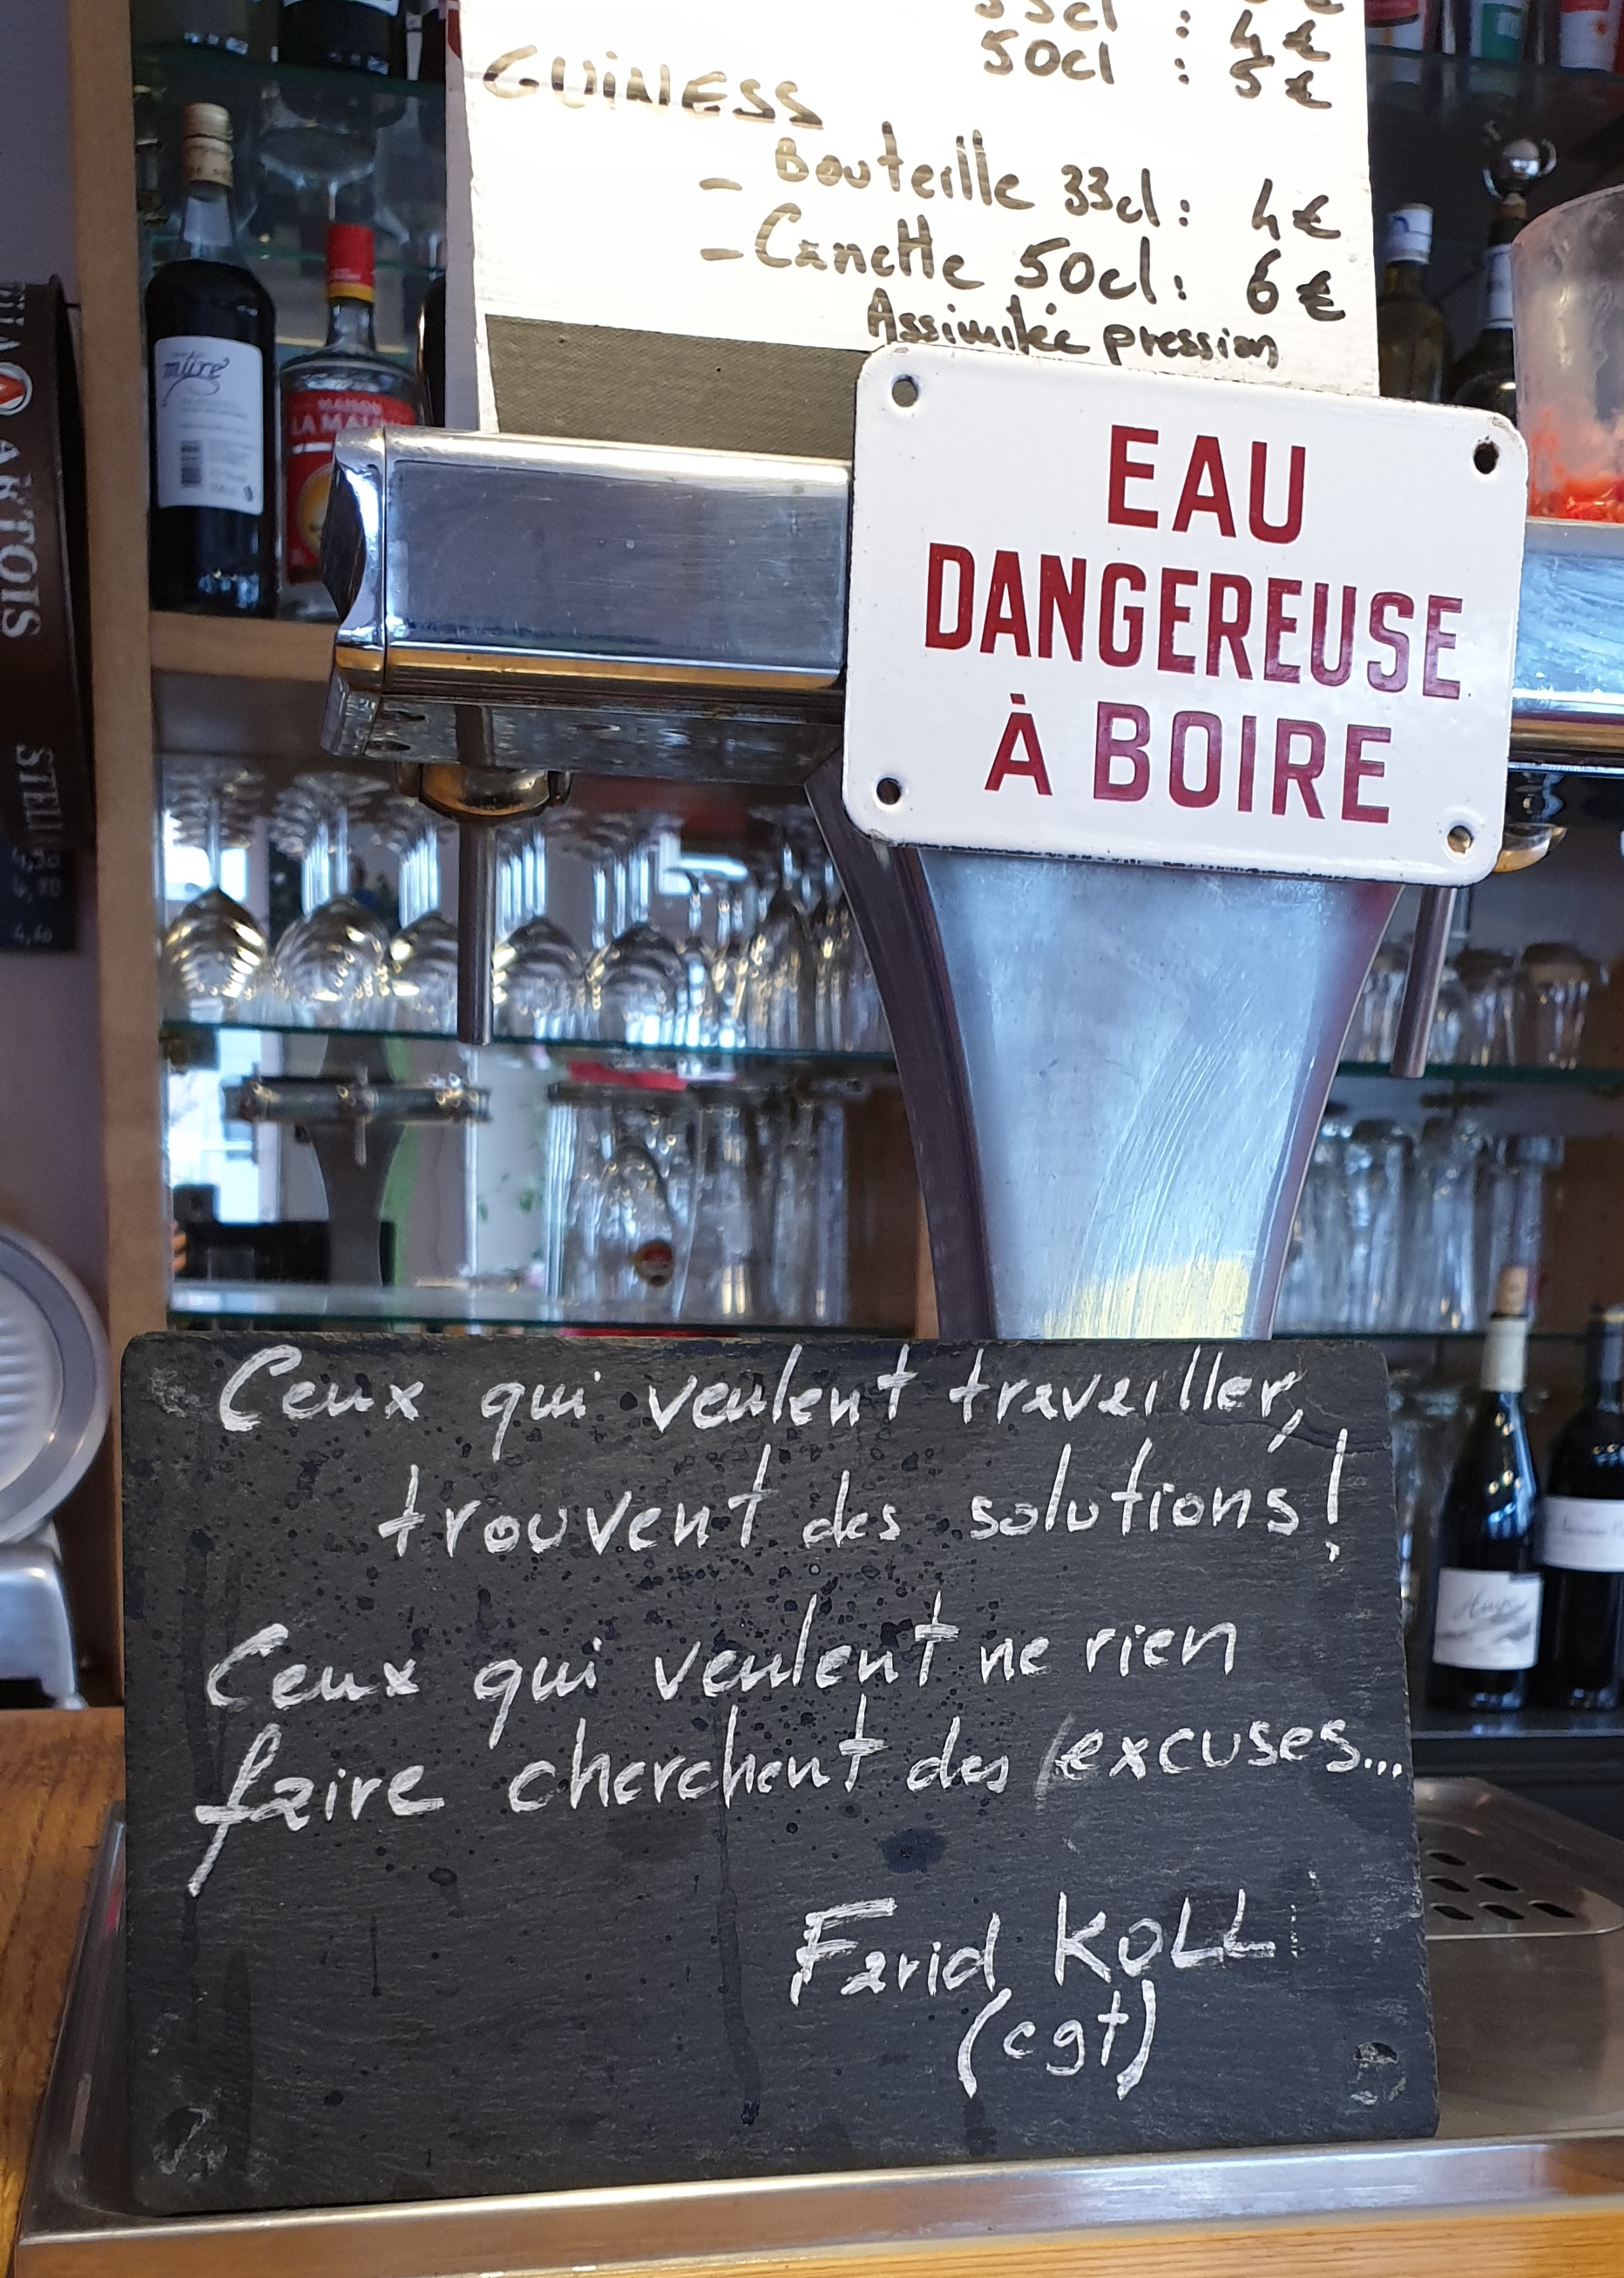 33cl : 4€
50cl : 5€
GUINESS
- Bouteille 33cl : 4€
- Canette 50cl : 6€
Assimilée pression
mûre
MAISON
ARTOIS
EAU
DANGEREUSE
À BOIRE
Ceux qui veulent travailler,
trouvent des solutions !
Ceux qui veulent ne rien
faire cherchent des excuses...
Farid KOLLI
(cgt)